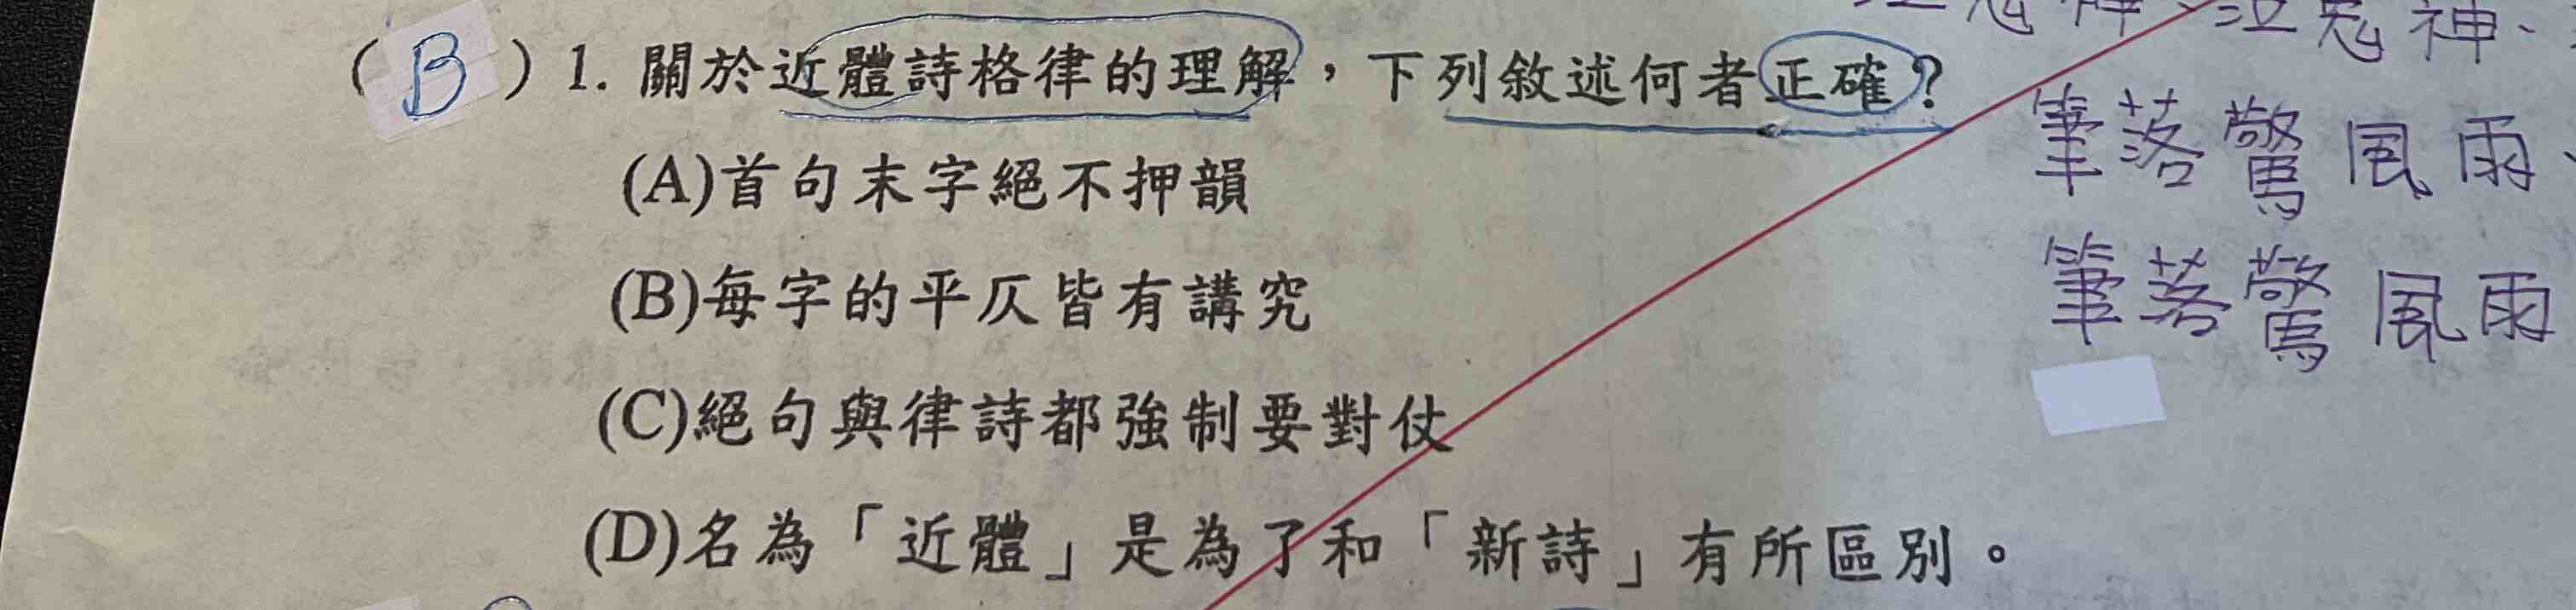 (B) 1. 關於近體詩格律的理解,下列敘述何者正確?
(A)首句末字絕不押韻
(B)每字的平仄皆有講究
(C)絕句與律詩都強制要對仗
(D)名為「近體」是為了和「新詩」有所區別。
神、
筆落驚風雨、
筆落驚風雨